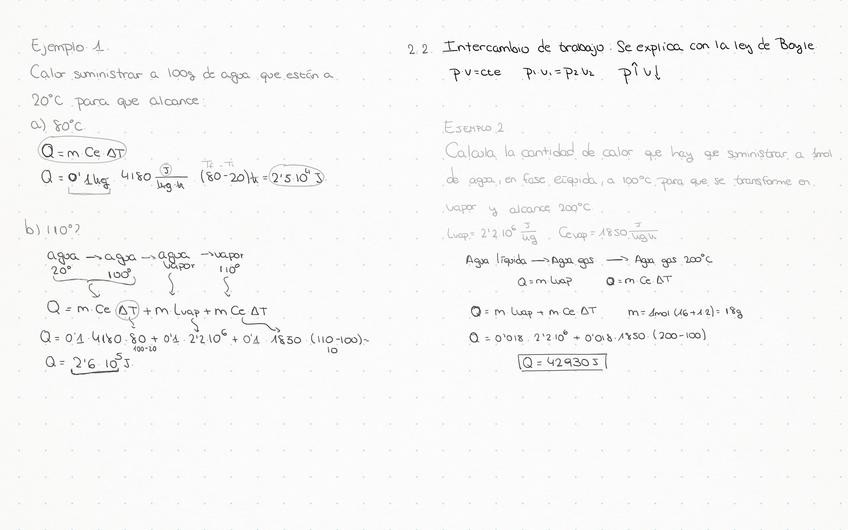 Ejemplo 1.
Calor suministrar a 100g de agua que están a
20°C para que alcance:
a) 80°C
Q = m Ce ΔT
Tf - Ti
Q = 0'1kg · 4180 J/kg·K (80-20)K = 2'5·10⁴ J
b) 110°?
agua → agua → agua → vapor
20° 100° vapor 110°
Q = m·Ce ΔT + m·Lvap + m Ce ΔT
Q = 0'1·4180·80 + 0'1·2'2·10⁶ + 0'1·1850·(110-100)=
100-20 10
Q = 2'6·10⁵ J.
2.2. Intercambio de trabajo: Se explica con la ley de Boyle
p·v=cte p₁·v₁=p₂v₂ p↑ v↓
EJEMPLO 2
Calcula la cantidad de calor que hay qe suministrar a 1mol
de agua, en fase líquida, a 100°C para que se transforme en
vapor y alcance 200°C
Lvap = 2'2·10⁶ J/kg Cevap = 1850 J/kg·K
Agua líquida → Agua gas → Agua gas 200°C
Q = m Lvap Q = m Ce ΔT
Q = m Lvap + m Ce ΔT m = 1mol (16+1·2) = 18g
Q = 0'018·2'2·10⁶ + 0'018·1850·(200-100)
Q = 42930 J